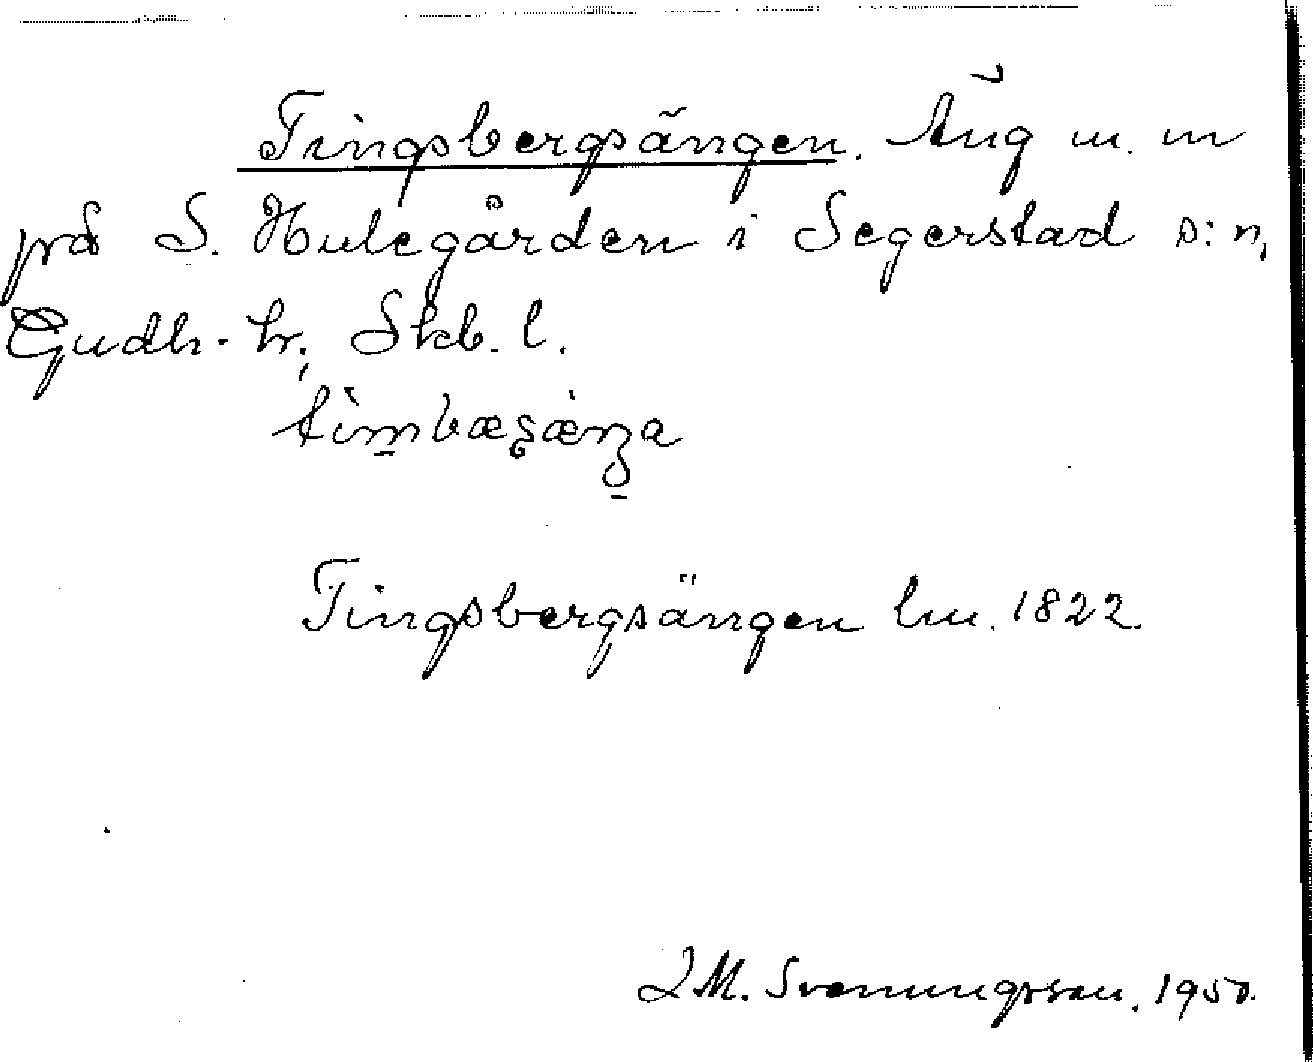 Tingsbergsängen. Äng m. m
på S. Hulegården i Segerstad s:n,
Gudh. hr, Skb. l.
Tingsbergsängen lm. 1822
Svenungsson. 1950.